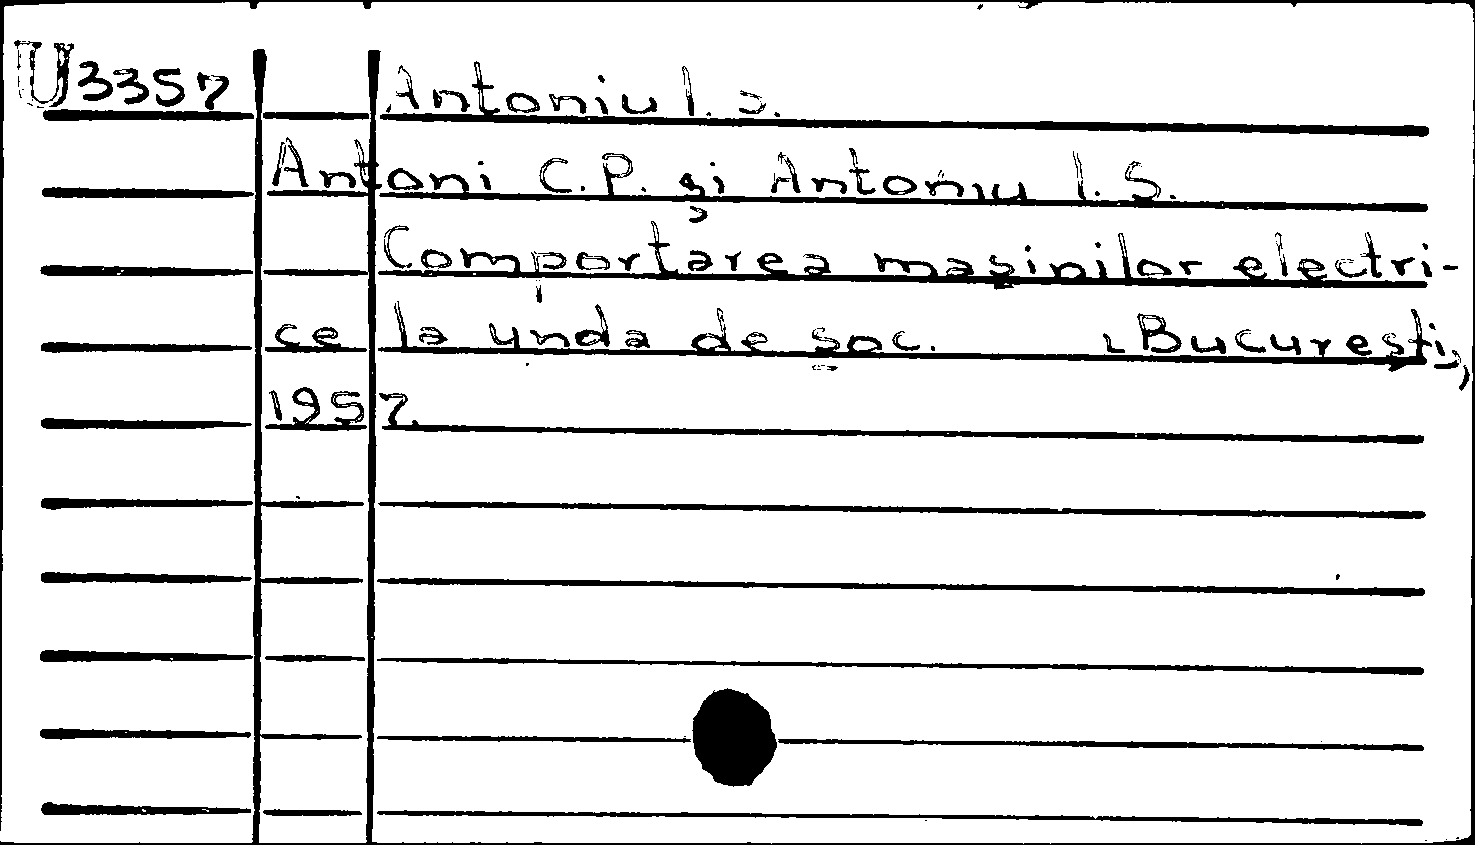 U3357 Antoniu I. S.
Antoni C.P. și Antoniu I. S.
Comportarea mașinilor electri-
ce la unda de șoc. București,
1957.